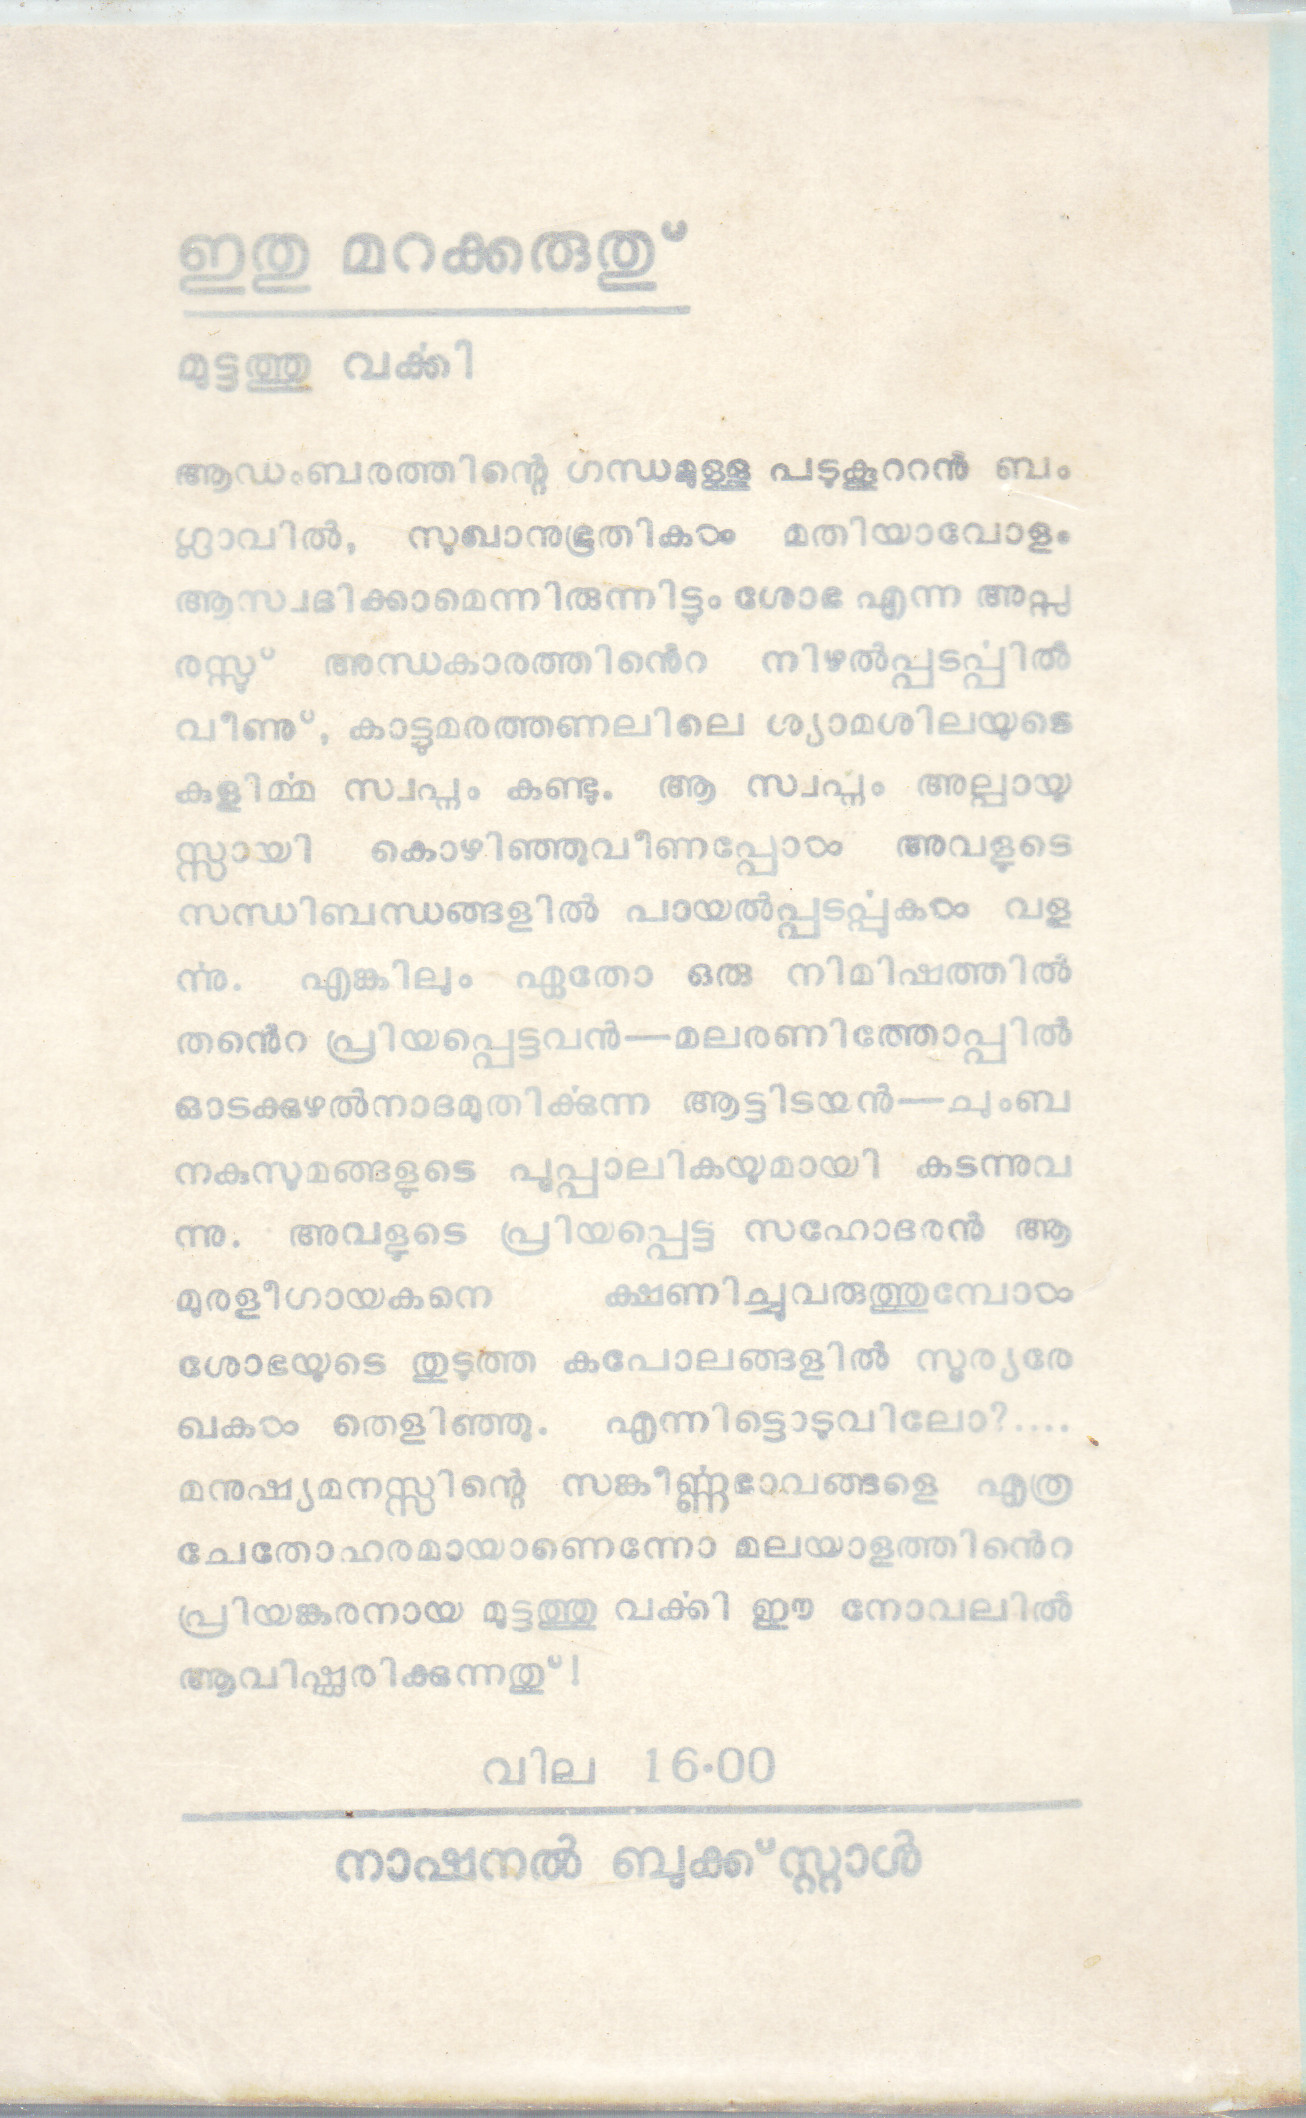 ഇതു മറക്കരുതു്
മുട്ടത്തു വൎക്കി
ആഡംബരത്തിന്റെ ഗന്ധമുള്ള പടുകൂററൻ ബം
ഗ്ലാവിൽ, സുഖാനുഭൂതികൾ മതിയാവോളം
ആസ്വദിക്കാമെന്നിരുന്നിട്ടും ശോഭ എന്ന അപ്സ
രസ്സു് അന്ധകാരത്തിൻെറ നിഴൽപ്പടൎപ്പിൽ
വീണു്, കാട്ടുമരത്തണലിലെ ശ്യാമശിലയുടെ
കുളിൎമ്മ സ്വപ്നം കണ്ടു. ആ സ്വപ്നം അല്പായു
സ്സായി കൊഴിഞ്ഞുവീണപ്പോൾ അവളുടെ
സന്ധിബന്ധങ്ങളിൽ പായൽപ്പടൎപ്പുകൾ വള
ൎന്നു. എങ്കിലും ഏതോ ഒരു നിമിഷത്തിൽ
തൻെറ പ്രിയപ്പെട്ടവൻ—മലരണിത്തോപ്പിൽ
ഓടക്കുഴൽനാദമുതിൎക്കുന്ന ആട്ടിടയൻ—ചുംബ
നകുസുമങ്ങളുടെ പൂപ്പാലികയുമായി കടന്നുവ
ന്നു. അവളുടെ പ്രിയപ്പെട്ട സഹോദരൻ ആ
മുരളീഗായകനെ ക്ഷണിച്ചുവരുത്തുമ്പോൾ
ശോഭയുടെ തുടുത്ത കപോലങ്ങളിൽ സൂര്യരേ
ഖകൾ തെളിഞ്ഞു. എന്നിട്ടൊടുവിലോ?....
മനുഷ്യമനസ്സിന്റെ സങ്കീൎണ്ണഭാവങ്ങളെ എത്ര
ചേതോഹരമായാണെന്നോ മലയാളത്തിൻെറ
പ്രിയങ്കരനായ മുട്ടത്തു വൎക്കി ഈ നോവലിൽ
ആവിഷ്ക്കരിക്കുന്നതു്!
വില 16·00
നാഷനൽ ബുക്ക്സ്റ്റാൾ